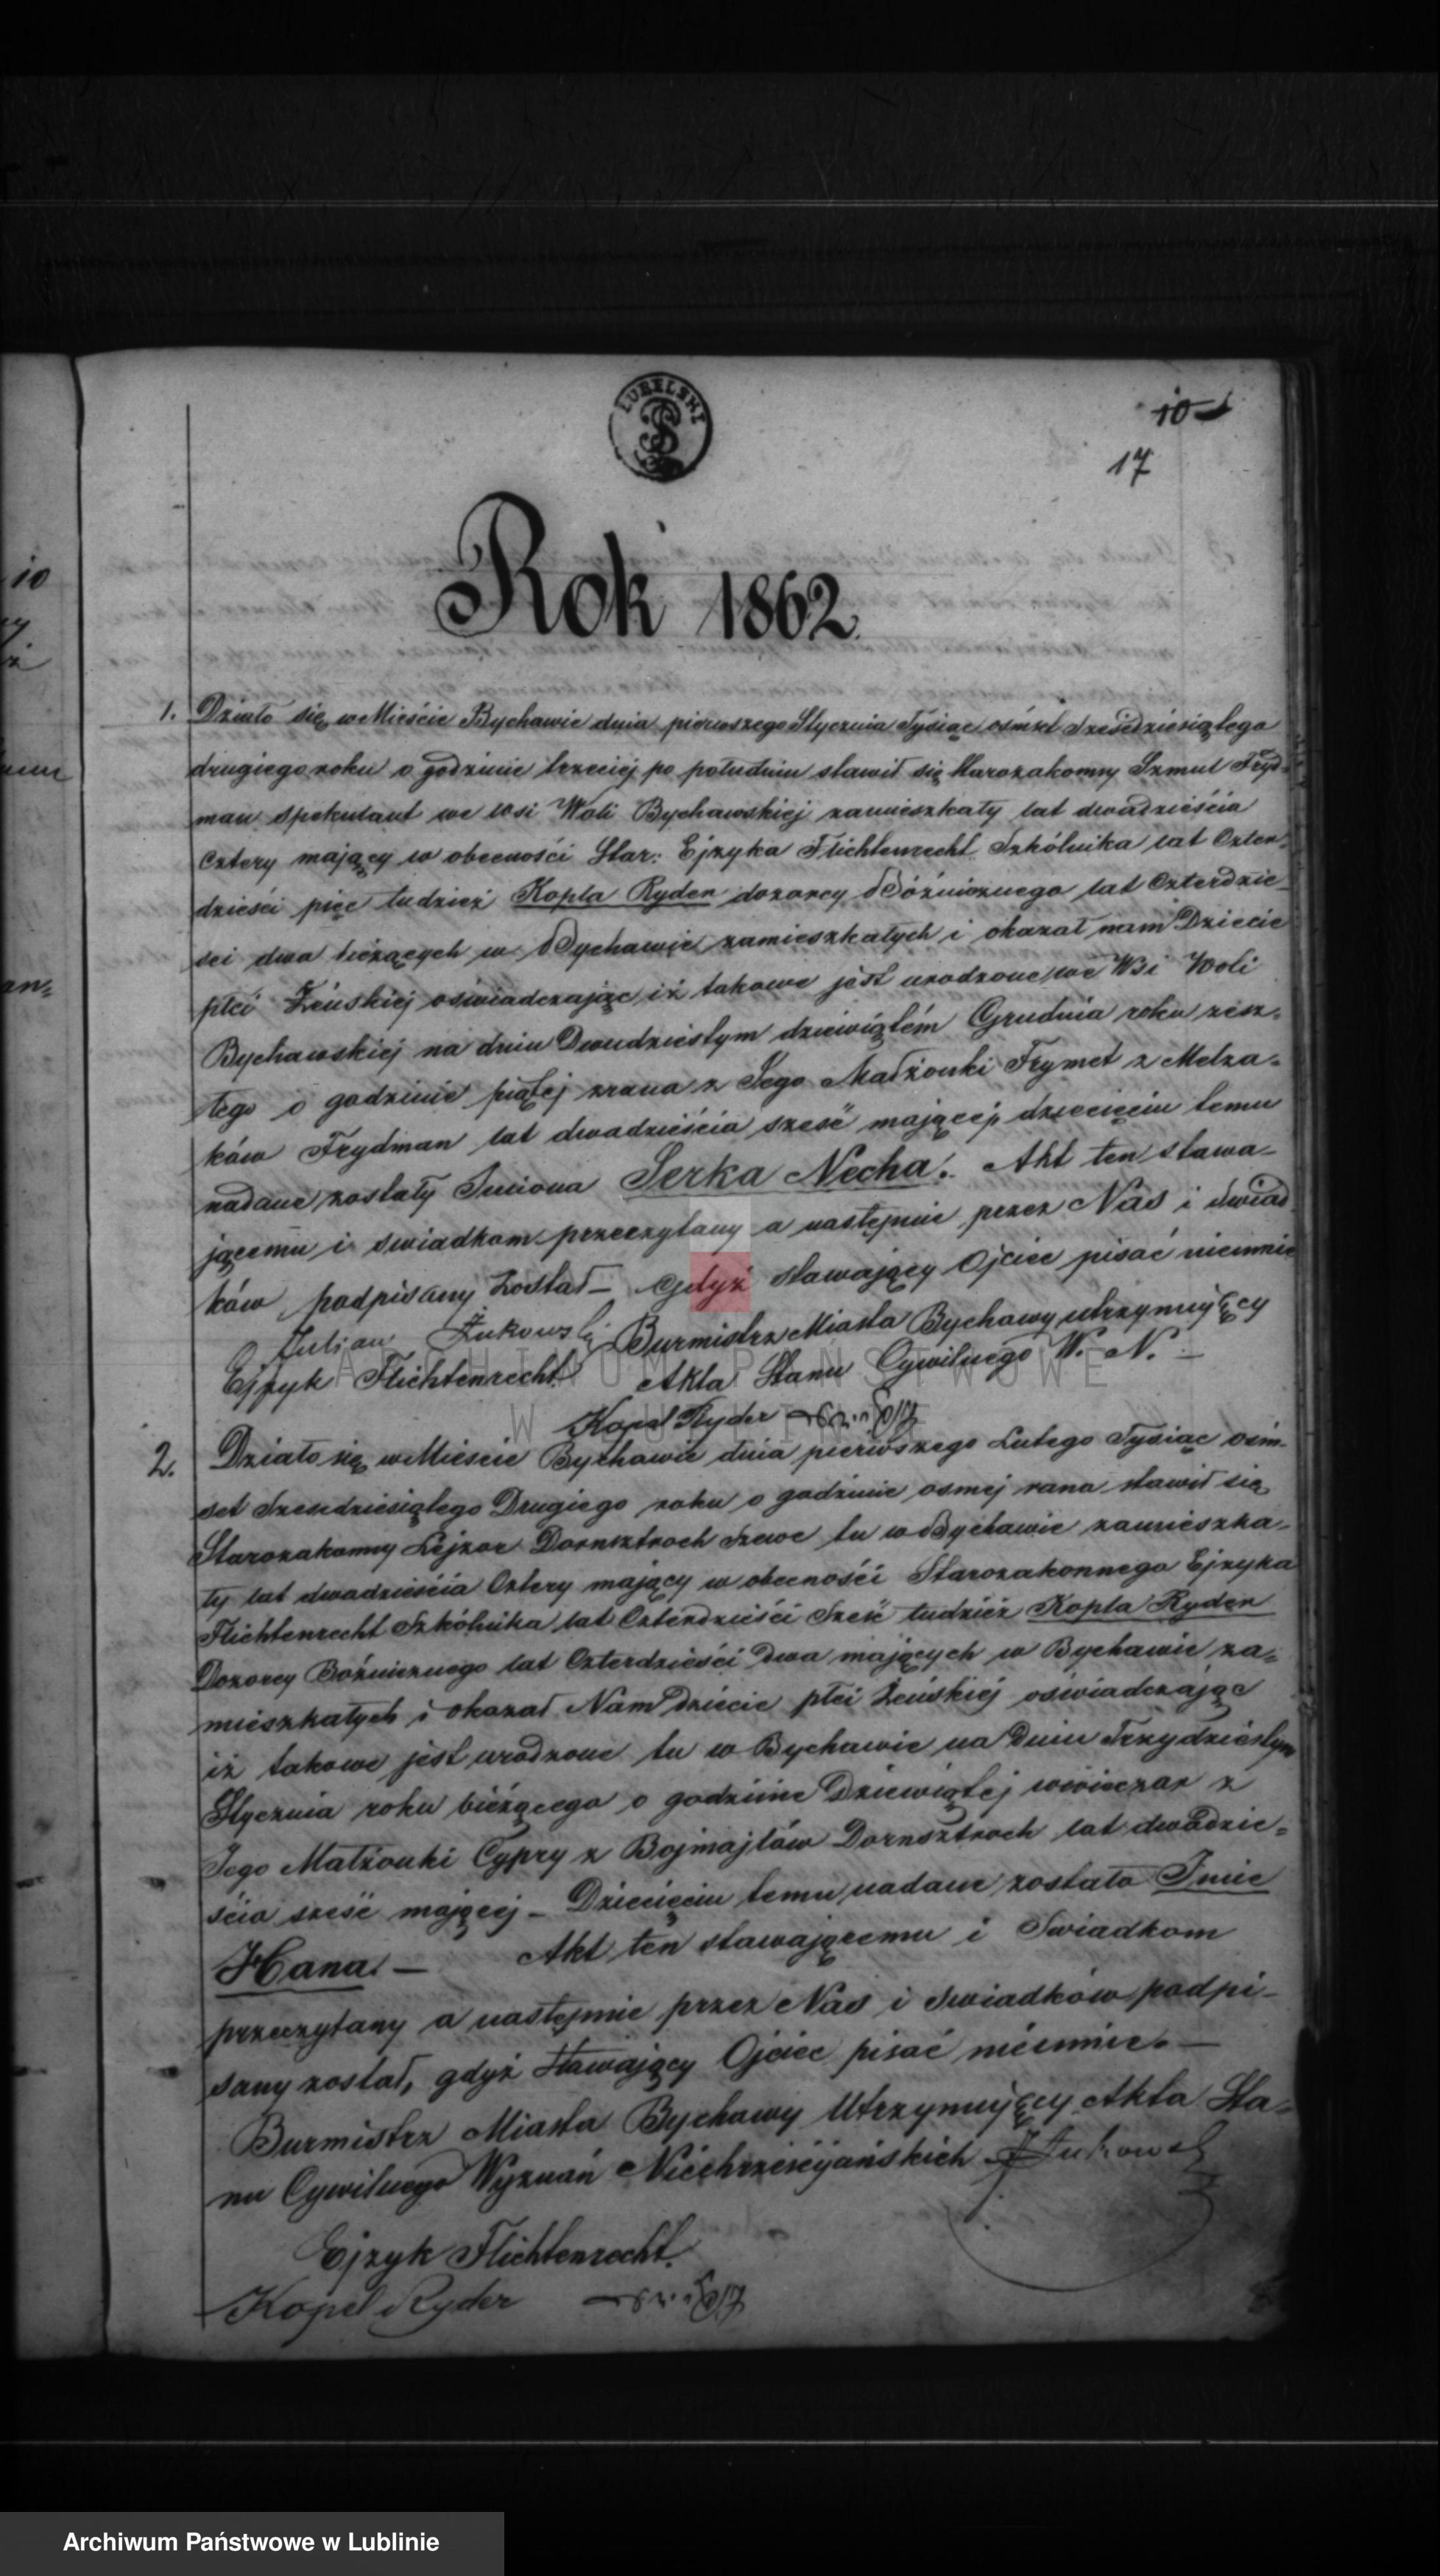 LUBELSKI
10
17
Rok 1862.
1. Działo się w Mieście Bychawie dnia pierwszego Stycznia Tysiąc ośmset sześćdziesiątego
drugiego roku o godzinie trzeciej po południu stawił się starozakonny Szmul Fryd=
man spekulant we wsi Woli Bychawskiej zamieszkały lat dwadzieścia
cztery mający w obecności Star: Ejzyka Flichtenrecht Szkólnika lat Czter=
dzieści pięc tudzież Kopla Ryder dozorcy Bóżnicznego lat Czterdzie=
sci dwa liczących w Bychawie zamieszkałych i okazał nam Dziecie
płci Żeńskiej oświadczając iż takowe jest urodzone we Wsi Woli
Bychawskiej na dniu Dwudziestym dziewiątém Grudnia roku zesz=
łego o godzinie piątej zrana z Jego Małżonki Frymet z Melza=
ków Frydman lat dwadzieścia sześć mającej, dziecięciu temu
nadane zostały Imiona Serka Necha. Akt ten stawa=
jącemu i swiadkom przeczytany a następnie przez Nas i swiad
ków podpisany został – gdyż stawający Ojciec pisać nieumie
Julian Żukowski Burmistrz Miasta Bychawy utrzymujący
Ejzyk Flichtenrecht Akta Stanu Cywilnego W. N. –
ARCHIWUM PAŃSTWOWE
W LUBLINIE
Kopel Ryder
2. Działo się w Mieście Bychawie dnia pierwszego Lutego Tysiąc ośm=
set Szesdziesiątego Drugiego roku o godzinie osmej rano stawił się
Starozakonny Lejzor Dornsztroch Szewc tu w Bychawie zamieszka=
ły lat dwadzieścia Cztery mający w obecności Starozakonnego Ejzyka
Flichtenrecht Szkólnika lat Czterdzieści Sześć tudzież Kopla Ryder
Dozorcy Bóżnicznego lat Czterdzieści Dwa mających w Bychawie za=
mieszkałych i okazał Nam Dziecie płci Żeńskiej oświadczając
iż takowe jest urodzone tu w Bychawie na Dniu Trzydziestym
Stycznia roku bieżącego o godzinie Dziewiątej wwieczor z
Jego Małżonki Cypry z Bojmajlów Dornsztroch lat dwadzie=
ścia sześć mającej – Dziecięciu temu nadane zostało Imie
Hana. – Akt ten stawającemu i Swiadkom
przeczytany a następnie przez Nas i swiadków podpi=
sany został, gdyż stawający Ojciec pisać nieumie. –
Burmistrz Miasta Bychawy Utrzymujący Akta Sta=
nu Cywilnego Wyznań Niechrześcijańskich JŻukowski
Ejzyk Flichtenrecht
Kopel Ryder
Archiwum Państwowe w Lublinie